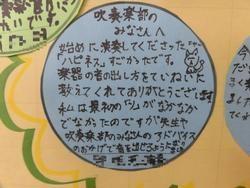 吹奏楽部の
みなさんへ
始めに演奏してくださった
「ハピネス」すごかったです。
楽器の音の出し方をていねいに
教えてくれてありがとうございます。
私は最初の「シ」がなかなか
でなかったのですが先生や
吹奏楽部のみなさんのアドバイス
のおかげで音を出せるようになり